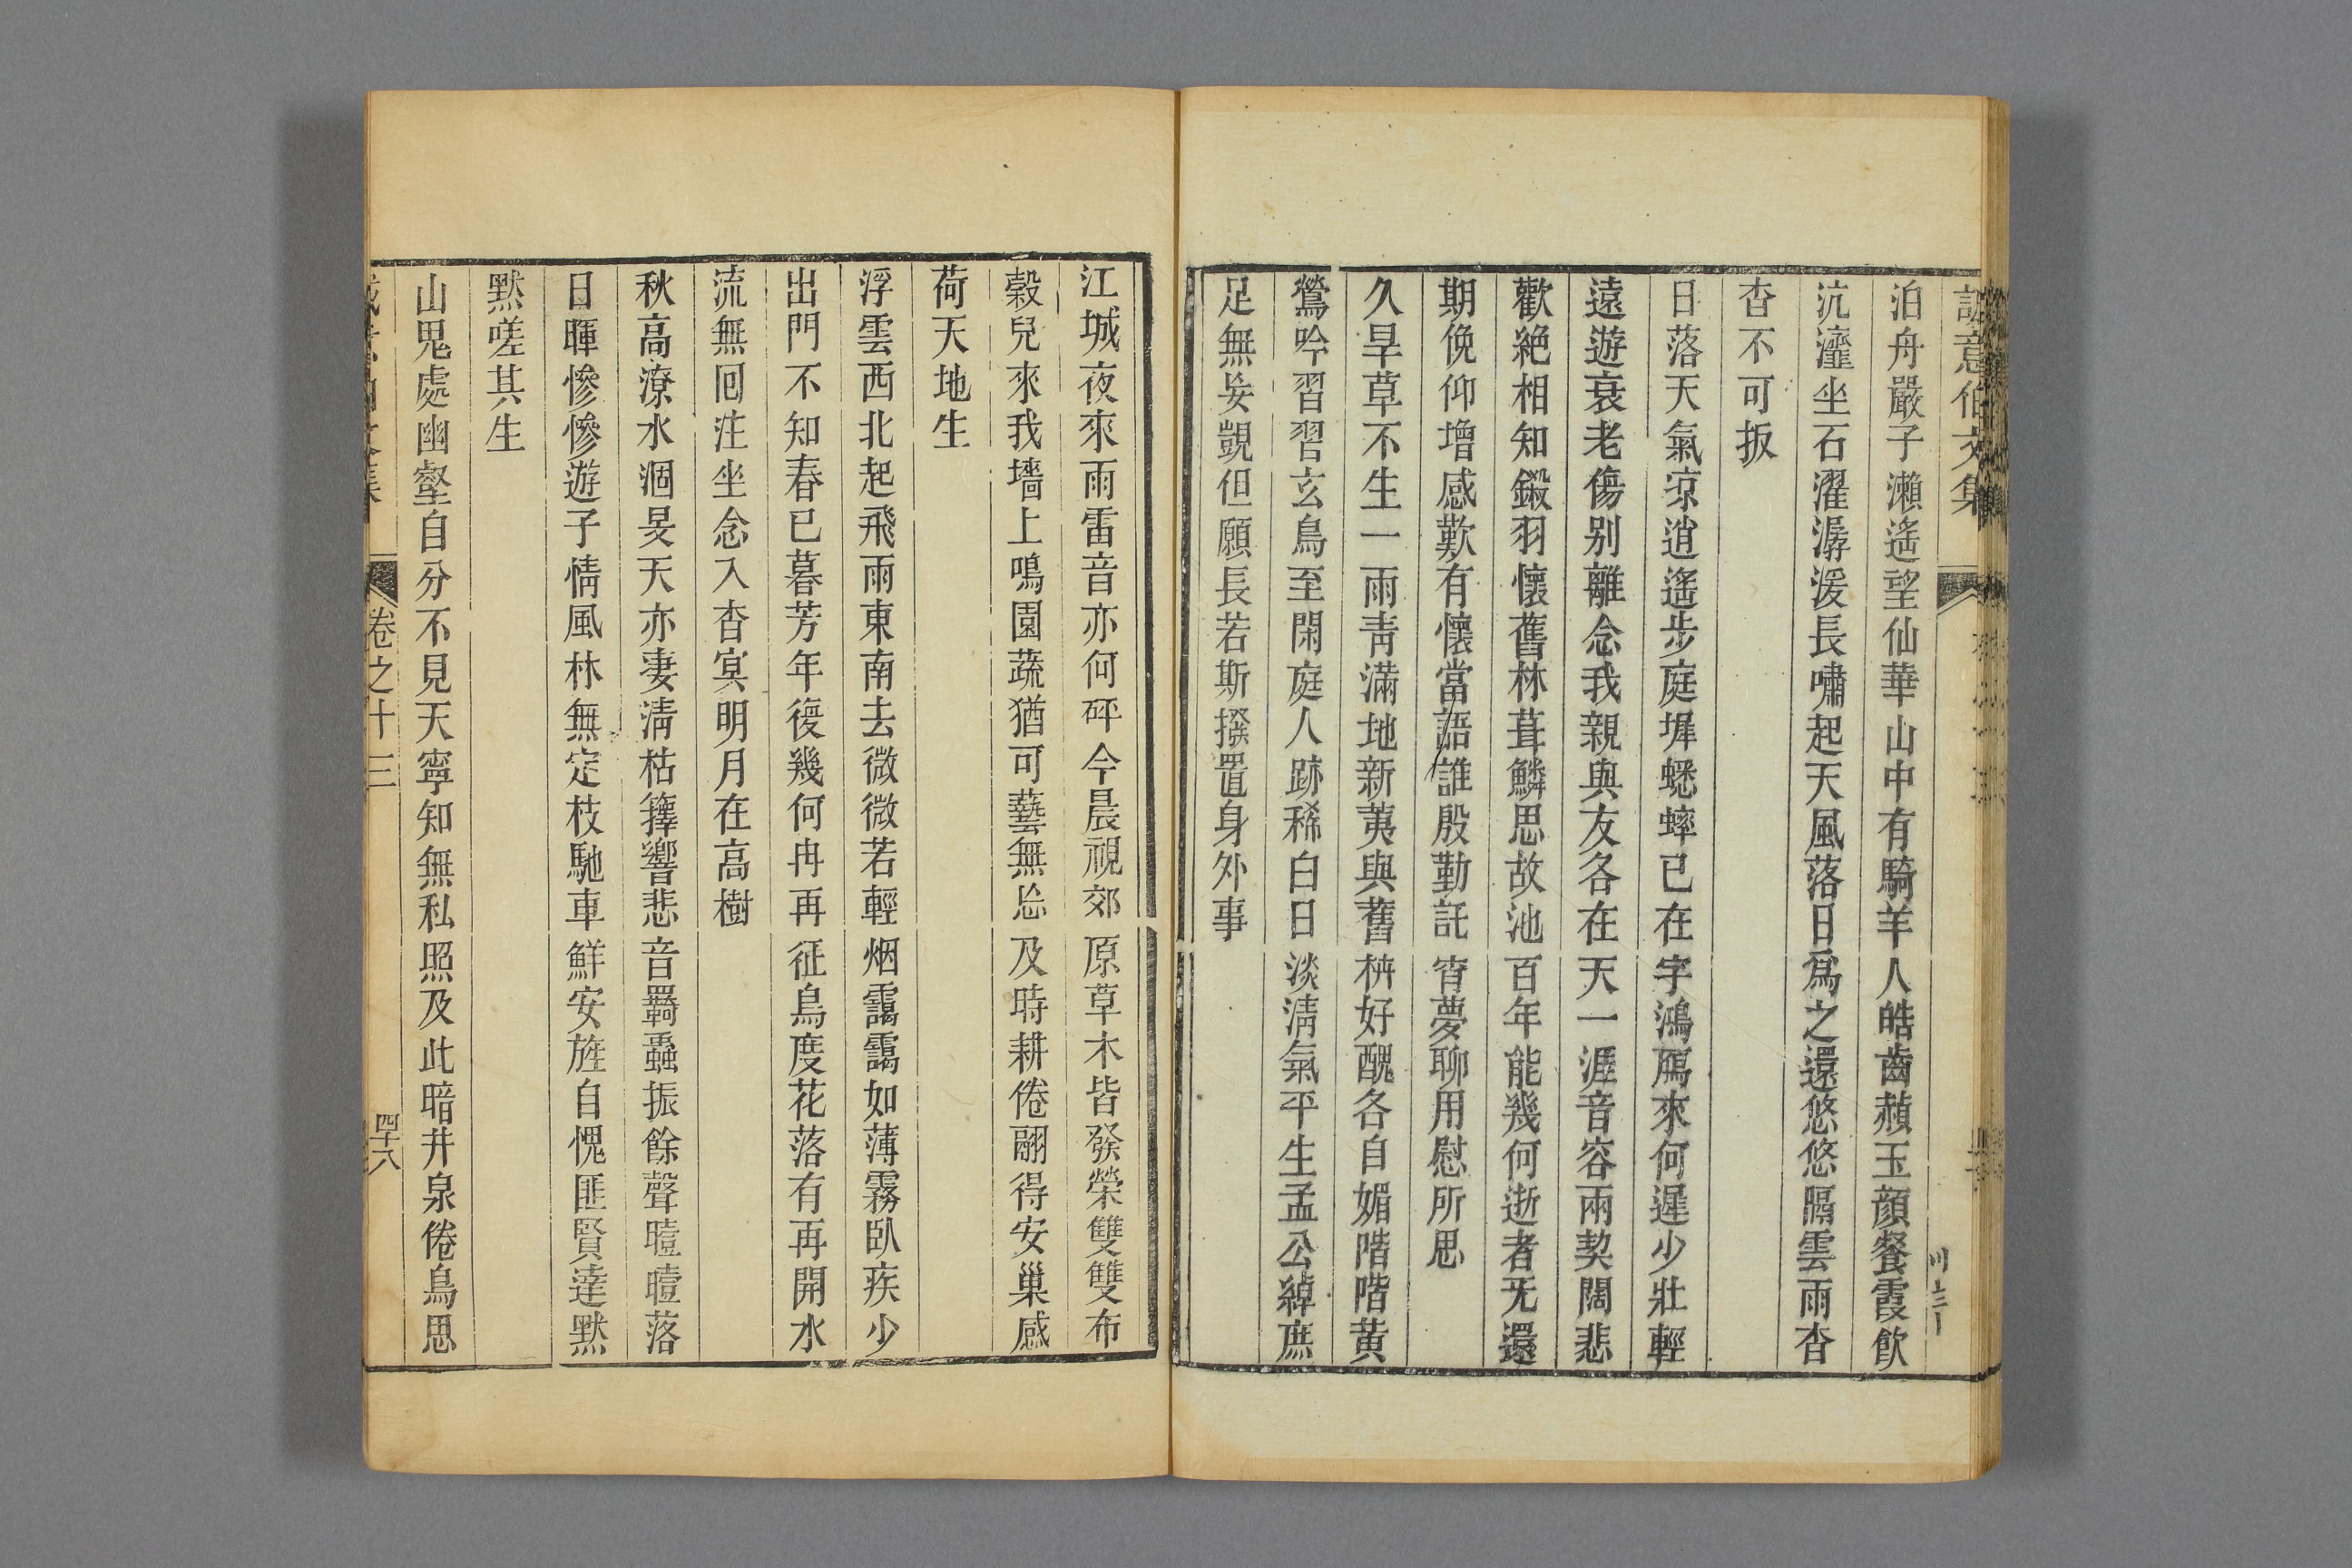 誠意伯文集
泊舟嚴子瀨遙望仙華山中有騎羊人皓齒頳玉顔餐霞飲
沆瀣坐石濯潺湲長嘯起天風落日爲之還悠悠隔雲雨杳
杳不可扳
日落天氣凉逍遙步庭墀蟋蟀已在宇鴻鴈來何遲少壯輕
遠遊衰老傷别離念我親與友各在天一涯音容兩契闊悲
歡絶相知鎩羽懷舊林葺鱗思故池百年能幾何逝者旡還
期俛仰增感歎有懷當語誰殷勤託宵夢聊用慰所思
久旱草不生一雨青滿地新荑與舊枿好醜各自媚喈喈黄
鶯吟習習玄鳥至閑庭人跡稀白日淡淸氣平生孟公綽庶
足無妄覬但願長若斯撥置身外事
江城夜來雨雷音亦何砰今晨視郊原草木皆發榮雙雙布
穀兒來我墻上鳴園蔬猶可藝無㤀及時耕倦翮得安巢感
荷天地生
浮雲西北起飛雨東南去微微若輕烟靄靄如薄霧臥疾少
出門不知春已暮芳年復幾何冉再征鳥度花落有再開水
流無囘注坐念入杳冥明月在高樹
秋高潦水涸旻天亦凄淸枯籜響悲音羇螽振餘聲曀曀落
日暉慘慘遊子情風林無定枝馳車鮮安旌自愧匪賢達黙
黙嗟其生
山鬼處幽壑自分不見天寧知無私照及此暗井泉倦鳥思
卷之十三
四十八